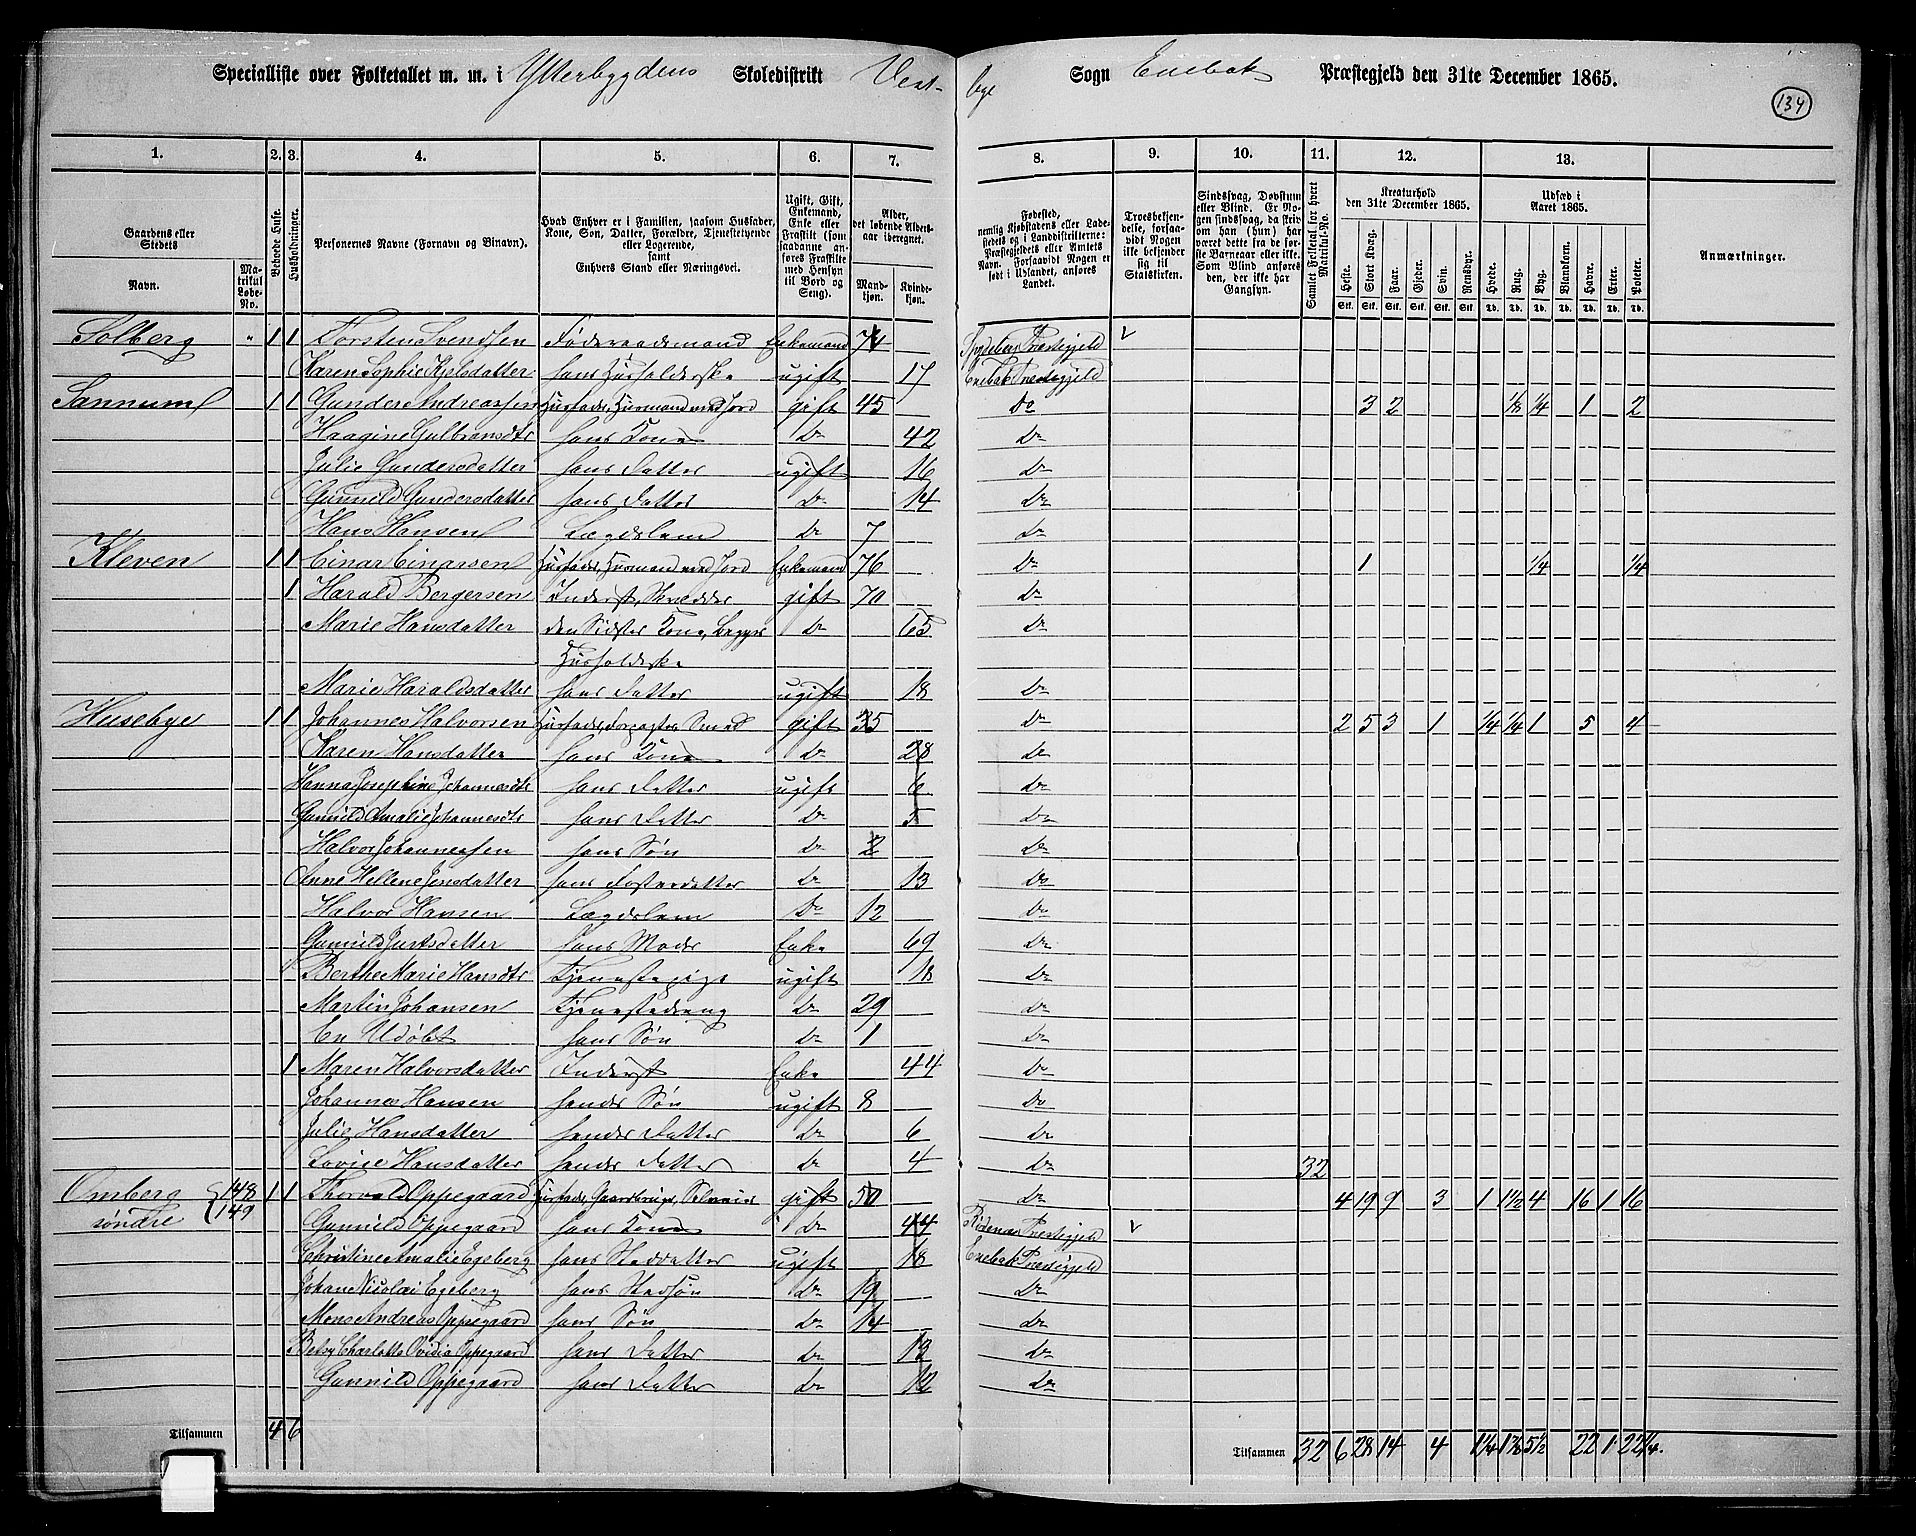 Specialliste over Folketallet m. m. i Ytterbygdens Skoledistrikt Vest-
bye Sogn Enebak Præstegjeld den 31te December 1865.
134
1. 2. 3. 4. 5. 6. 7. 8. 9. 10. 11. 12. 13.
Gaardens eller Stedets
Navn.
Matrikul Løbe-No.
Beboede Huse.
Husholdninger.
Personernes Navne (Fornavn og Binavn).
Hvad Enhver er i Familien, saasom Husfader, Kone, Søn, Datter, Forældre, Tjenestetyende eller Logerende, samt Enhvers Stand eller Næringsvei.
Ugift, Gift, Enkemand, Enke eller Fraskilt (som saadanne anføres Fraskilte med Hensyn til Bord og Seng).
Alder, det løbende Aldersaar iberegnet.
Mandkjøn. Kvindekjøn.
Fødested, nemlig Kjøbstadens eller Ladestedets og i Landdistrikterne: Præstegjeldets eller Amtets Navn. Forsaavidt Nogen er født i Udlandet, anføres Landet.
Troesbekjendelse, forsaavidt Nogen ikke bekjender sig til Statskirken.
Sindssvag, Døvstum eller Blind. Er Nogen sindssvag, da skriv om han (hun) har været dette fra de første Barneaar eller ikke. Som Blind anføres den, der ikke har Gangsyn.
Samlet Folketal for hvert Matrikul-No.
Kreaturhold den 31te December 1865.
Heste. Stort Kvæg. Faar. Gjeder. Svin. Rensdyr.
Udsæd i Aaret 1865.
Hvede. Rug. Byg. Blandkorn. Havre. Erter. Poteter.
Anmærkninger.
Solberg " 1 1 Torsten Svendsen Føderaadsmand Enkemand 74 Spydeberg Præstegjeld
Karen Sophie Kjelsdatter hans Husholderske ugift 17 Enebak Præstegjeld
Sannum 1 1 Gunder Andreassen Husfader, Husmand med Jord gift 45 Do 3 2 1/8 1/4 1 2
Haagine Gulbransdtr hans Kone Do 42 Do
Julie Gundersdatter hans Datter ugift 16 Do
Gunnild Gundersdatter hans Datter Do 14 Do
Hans Hansen Lægdslem Do 7 Do
Kleven 1 1 Einar Einarsen Husfader, Husmand med Jord Enkemand 76 Do 1 1/4 1/4
1 Harald Bergersen Inderst, Skrædder gift 70 Do
Marie Hansdatter den Sidstes Kone, Begges Do 65 Do
Husholderske
Marie Haraldsdatter hans Datter ugift 18 Do
Husebye 1 1 Johannes Halvorsen Husfader, Forpagter, Smed gift 35 Do 2 5 3 1 1/4 1/4 1 5 4
Karen Hansdatter hans Kone Do 28 Do
Hanna Josephine Johannesdtr hans Datter ugift 6 Do
Gunnild Amalie Johannesdtr hans Datter Do 5 Do
Halvor Johannessen hans Søn Do 2 Do
Anne Hellene Jensdatter hans Fosterdatter Do 13 Do
Halvor Hansen Lægdslem Do 12 Do
Gunnild Juttsdatter hans Moder Enke 69 Do
Berthe Marie Hansdtr Tjenestepige ugift 18 Do
Martin Johansen Tjenestedreng Do 29 Do
En Udøbt hans Søn Do 1 Do
1 Maren Halvorsdatter Inderst Enke 44 Do
Johannes Hansen hendes Søn ugift 8 Do
Julie Hansdatter hendes Datter Do 6 Do
Lovise Hansdatter hendes Datter Do 4 Do 32
Omberg søndre 148 149 1 1 Thorvald Oppegaard Husfader, Gaardbruger, Selveier gift 50 Do 4 19 9 3 1 1 1/2 4 16 1 16
Gunnild Oppegaard hans Kone Do 44 Rødenæs Præstegjeld
Christine Amalie Egeberg hans Steddatter ugift 18 Enebak Præstegjeld
Johan Nicolai Egeberg hans Stedsøn Do 19 Do
Mons Andreas Oppegaard hans Søn Do 14 Do
Betsy Charlotte Ovidia Oppegaard hans Datter Do 13 Do
Gunnild Oppegaard hans Datter Do 12 Do
Tilsammen 4 6 Tilsammen 32 6 28 14 4 1 1/4 1 7/8 5 1/2 22 1 22 1/4.